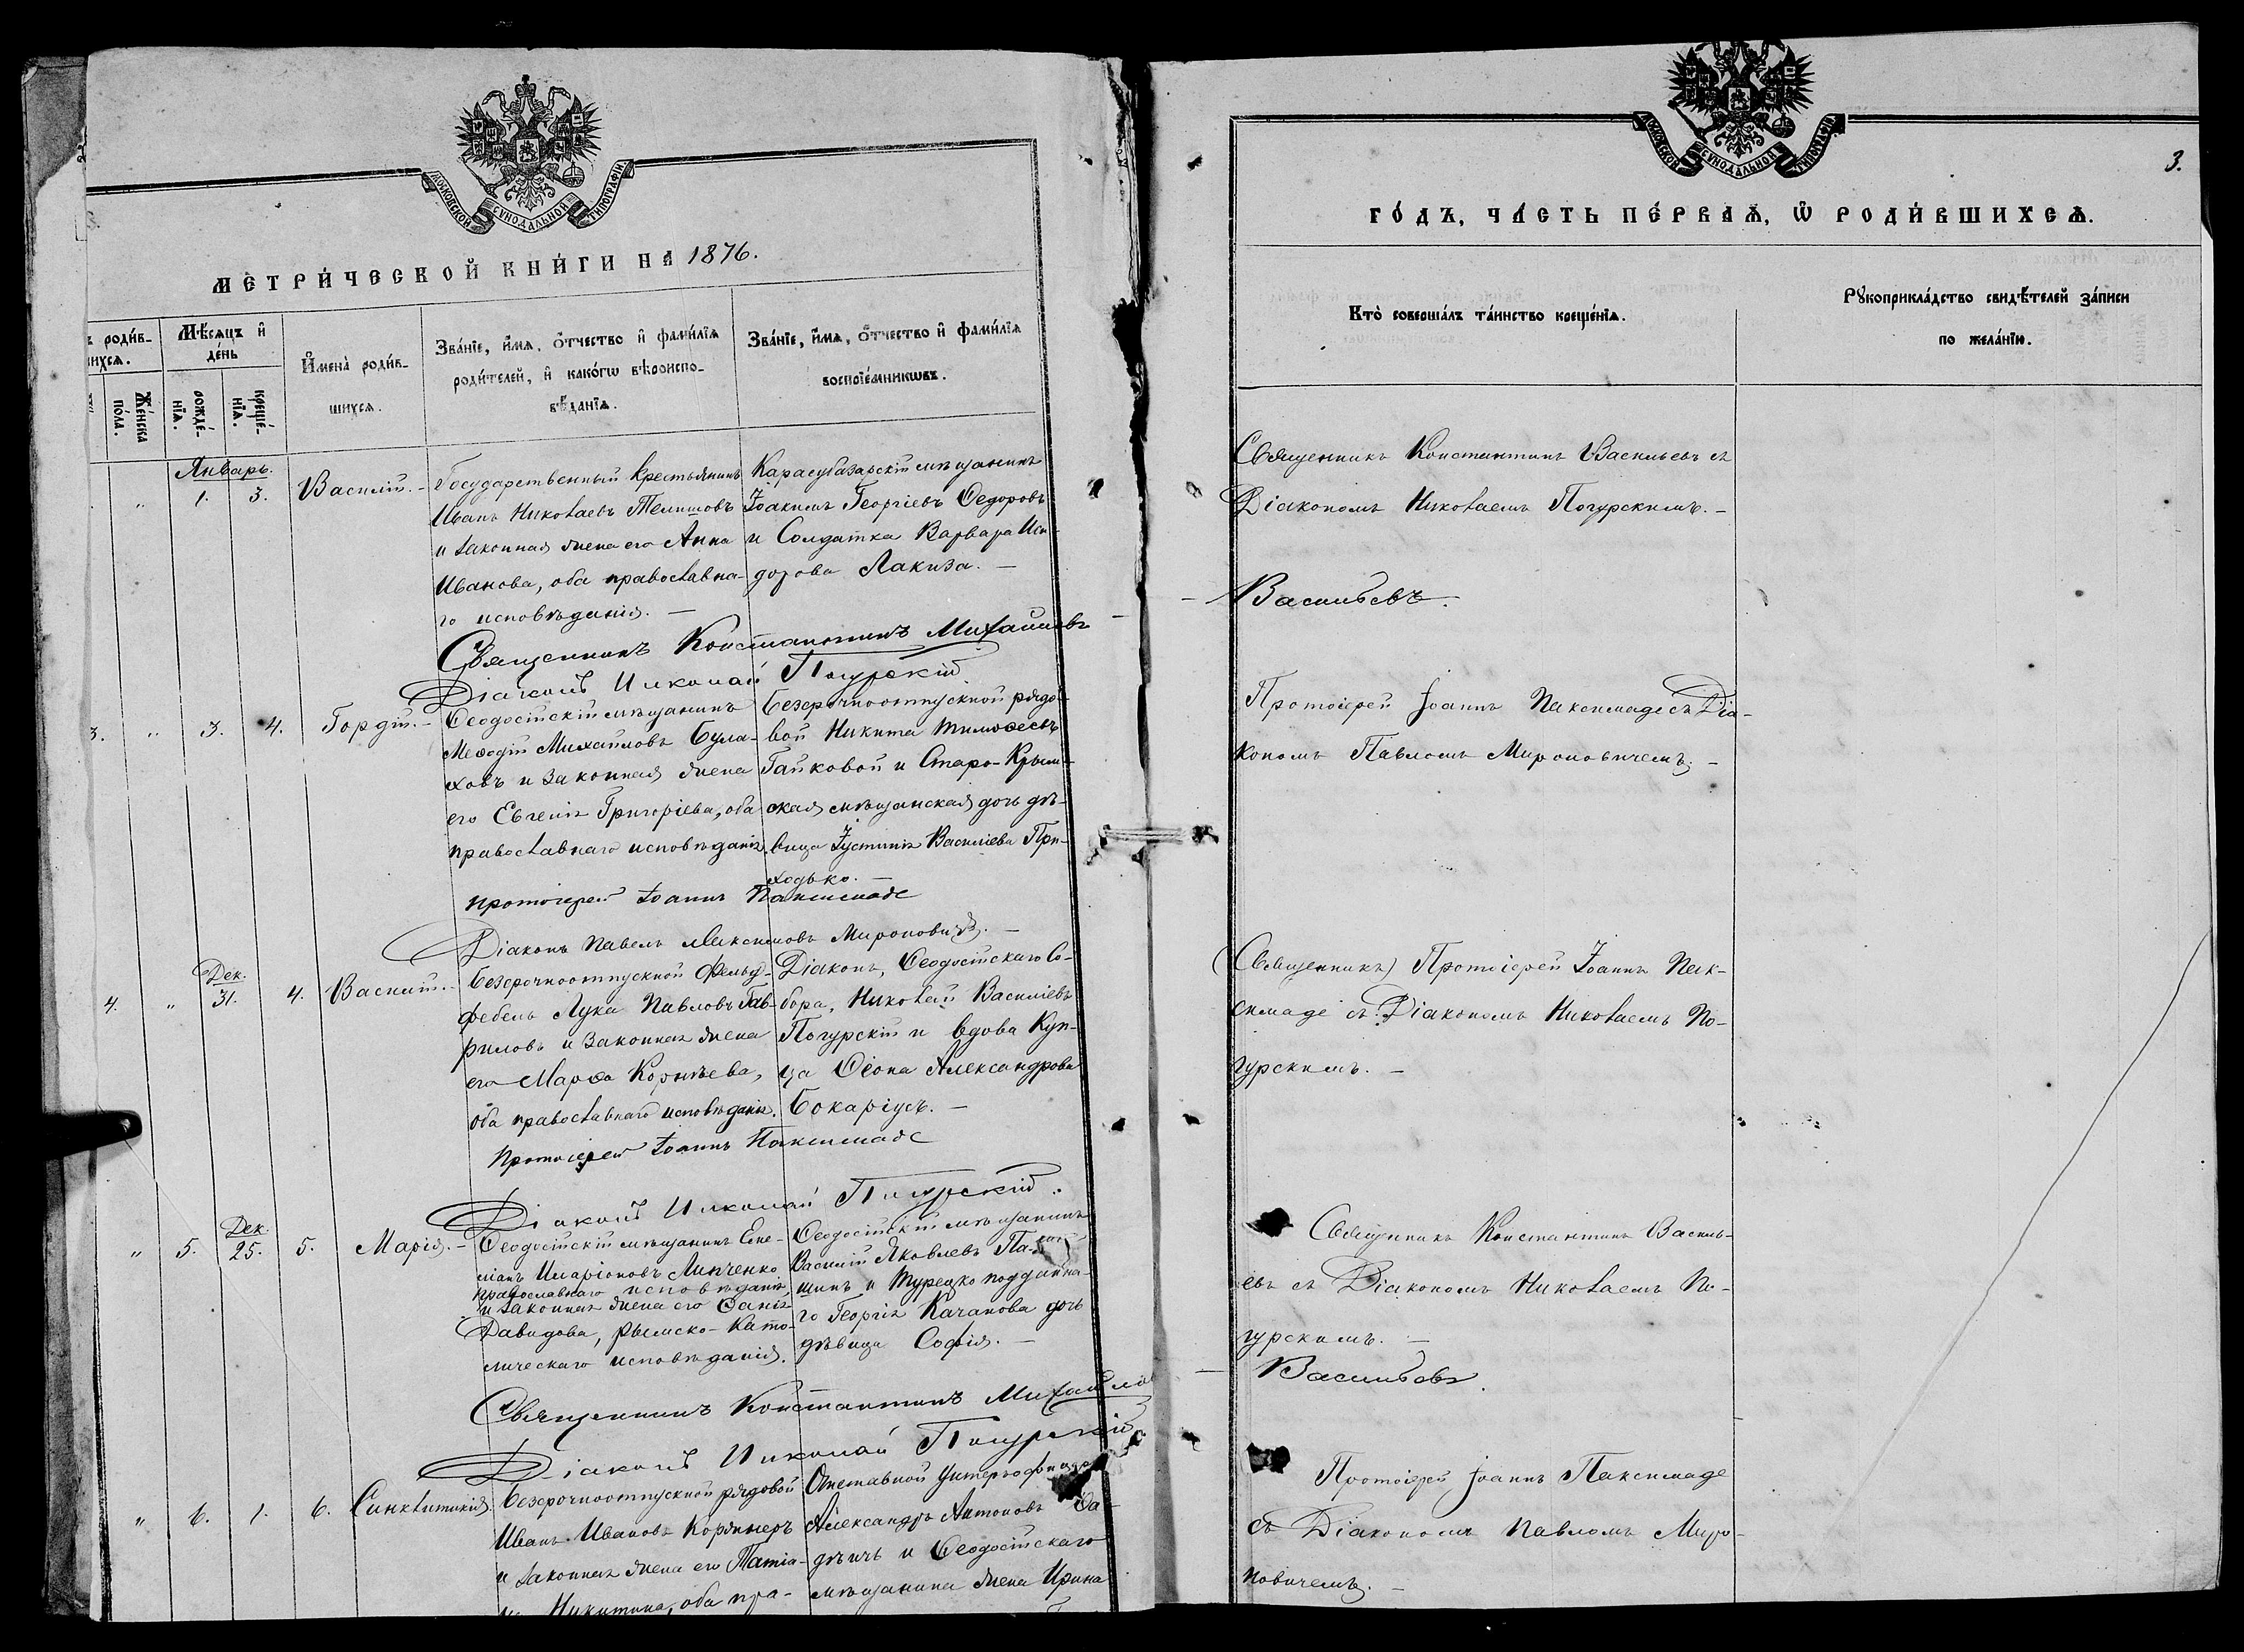 МОСКОВСКОЙ СУНОДАЛЬНОЙ ТИПОГРАФІИ.
МЕТРИ́ЧЕСКОЙ КНИ́ГИ НА 1876.
роди́в-
шихся.
Же́нска
по́ла.
Мѣ́сяцъ и҆
де́нь
рожде́-
нїѧ.
креще́-
нїѧ.
И҆мена̀ роди́в-
шихсѧ.
Зва́нїе, и҆́мѧ, ѻ҆́тчество и҆ фами́лїѧ
роди́телей, и҆ како́гѡ вѣроиспо-
вѣ́данїѧ.
Зва́нїе, и҆́мѧ, ѻ҆́тчество и҆ фами́лїѧ
воспрїе́мникѡвъ.
Январь.
" 1. 3. Василій.-
Государственный крестьянинъ
Иванъ Николаевъ Телишовъ
и законная жена его Анна
Иванова, оба православна-
го исповѣданія. —
Карасубазарскій мѣщанинъ
Іоакимъ Георгіевъ Ѳедоровъ
и Солдатка Варвара Иси-
дорова Лакиза. —
Священникъ Константинъ Михайловъ
Діаконъ Николай Погурскій.
3. " 3. 4. Гордій.-
Ѳеодосійскій мѣщанинъ
Меѳодій Михайловъ Була-
ховъ и законная жена
его Евгенія Григоріева, оба
православнаго исповѣданія.
Безсрочноотпускной рядо-
вой Никита Тимоѳеевъ
Гайковой и Старо-Крым-
ская мѣщанская дочь дѣ-
вица Іустинія Василіева При-
ходько. —
протоіерей Іоаннъ Паксимаде
Діаконъ Павелъ Максимовъ Мироновичъ. —
Дек.
4. " 31. 4. Василій.-
Безсрочноотпускной Фельд-
фебель Лука Павловъ Гав-
риловъ и законная жена
его Марѳа Корнѣева,
оба православнаго исповѣданія.
Діаконъ, Ѳеодосійскаго Со-
бора, Николай Василіевъ
Погурскій и вдова Куп-
ца Ѳеона Александрова
Бокаріусъ. —
Протоіерей Іоаннъ Паксимаде
Діаконъ Николай Погурскій.
Дек.
" 5. 25. 5. Марія.-
Ѳеодосійскій мѣщанинъ Еме-
ліанъ Иларіоновъ Липченко
православнаго исповѣданія,
и законная жена его Ѳанія
Давидова, Римско-Като-
лическаго исповѣданія.
Ѳеодосійскій мѣщанинъ
Василій Яковлевъ
шинъ и Турецко подданна-
го Георгія Качанова дочь
дѣвица Софія. —
Священникъ Константинъ Михайлов
Діаконъ Николай Погурскій
" 6. 1. 6. Синклитикія.
Безсрочноотпускной рядовой
Иванъ Ивановъ Коржнеръ
и законная жена его Татіа-
Никитина, оба пра-
Отставной Унтеръофицеръ
Александръ Антоновъ
дѣичъ и Ѳеодосійскаго
мѣщанина жена Ирина
МОСКОВСКОЙ СУНОДАЛЬНОЙ ТИПОГРАФІИ
3.
ГО́ДЪ, ЧА́СТЬ ПЕ́РВАѦ, Ѡ҆ РОДИ́ВШИХСѦ.
Кто̀ соверша́лъ та́инство креще́нїѧ.
Рꙋкоприкла́дство свидѣ́телей за́писи
по жела́нїю.
Священникъ Константинъ Васильевъ съ
Діакономъ Николаемъ Погурскимъ. —
Васильевъ.
Протоіерей Іоаннъ Паксимаде съ Діа-
кономъ Павломъ Мироновичемъ. —
(Священникъ) Протоіерей Іоаннъ Пак-
симаде съ Діакономъ Николаемъ По-
гурскимъ. —
Священникъ Константинъ Василь-
евъ съ Діакономъ Николаемъ По-
гурскимъ. —
Васильевъ.
Протоіерей Іоаннъ Паксимаде
съ Діакономъ Павломъ Миро-
новичемъ. —